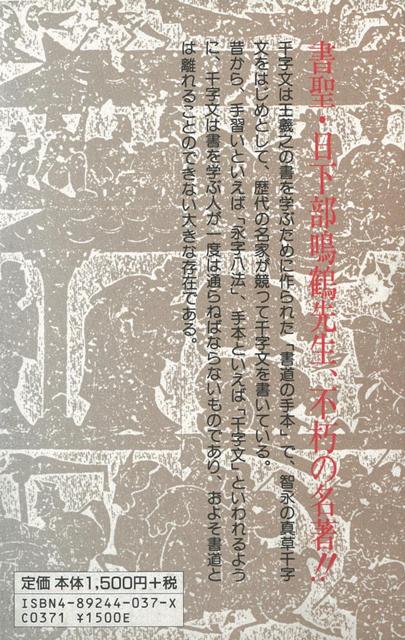 書聖・日下部鳴鶴先生、不朽の名著!!
千字文は王羲之の書を学ぶために作られた「書道の手本」で、智永の真草千字
文をはじめとして、歴代の名家が競つて千字文を書いている。
昔から、手習いといえば「永字八法」、手本といえば「千字文」といわれるよう
に、千字文は書を学ぶ人が一度は通らねばならないものであり、およそ書道と
は離れることのできない大きな存在である。
定価 本体1,500円+税
ISBN4-89244-037-X
C0371 ¥1500E